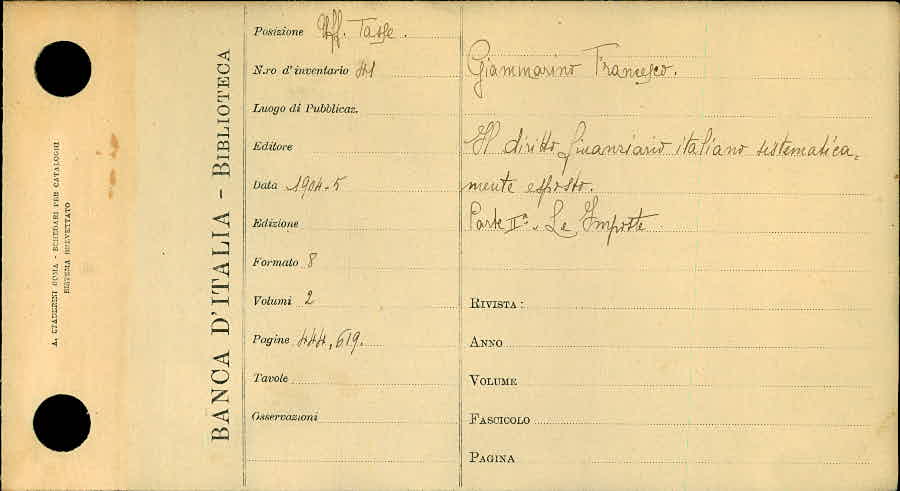 A. CIADERINI ROMA - SCHEDARI PER CATALOGHI
SISTEMA BREVETTATO
BANCA D'ITALIA - BIBLIOTECA
Posizione Uff. Tasse.
N.ro d'inventario 41
Luogo di Pubblicaz.
Editore
Data 1904-5
Edizione
Formato 8
Volumi 2
Pagine 444, 619.
Tavole
Osservazioni
Giammarino Francesco.
Il diritto finanziario italiano sistematica=
mente esposto.
Parte IIª. Le Imposte
RIVISTA:
ANNO
VOLUME
FASCICOLO
PAGINA